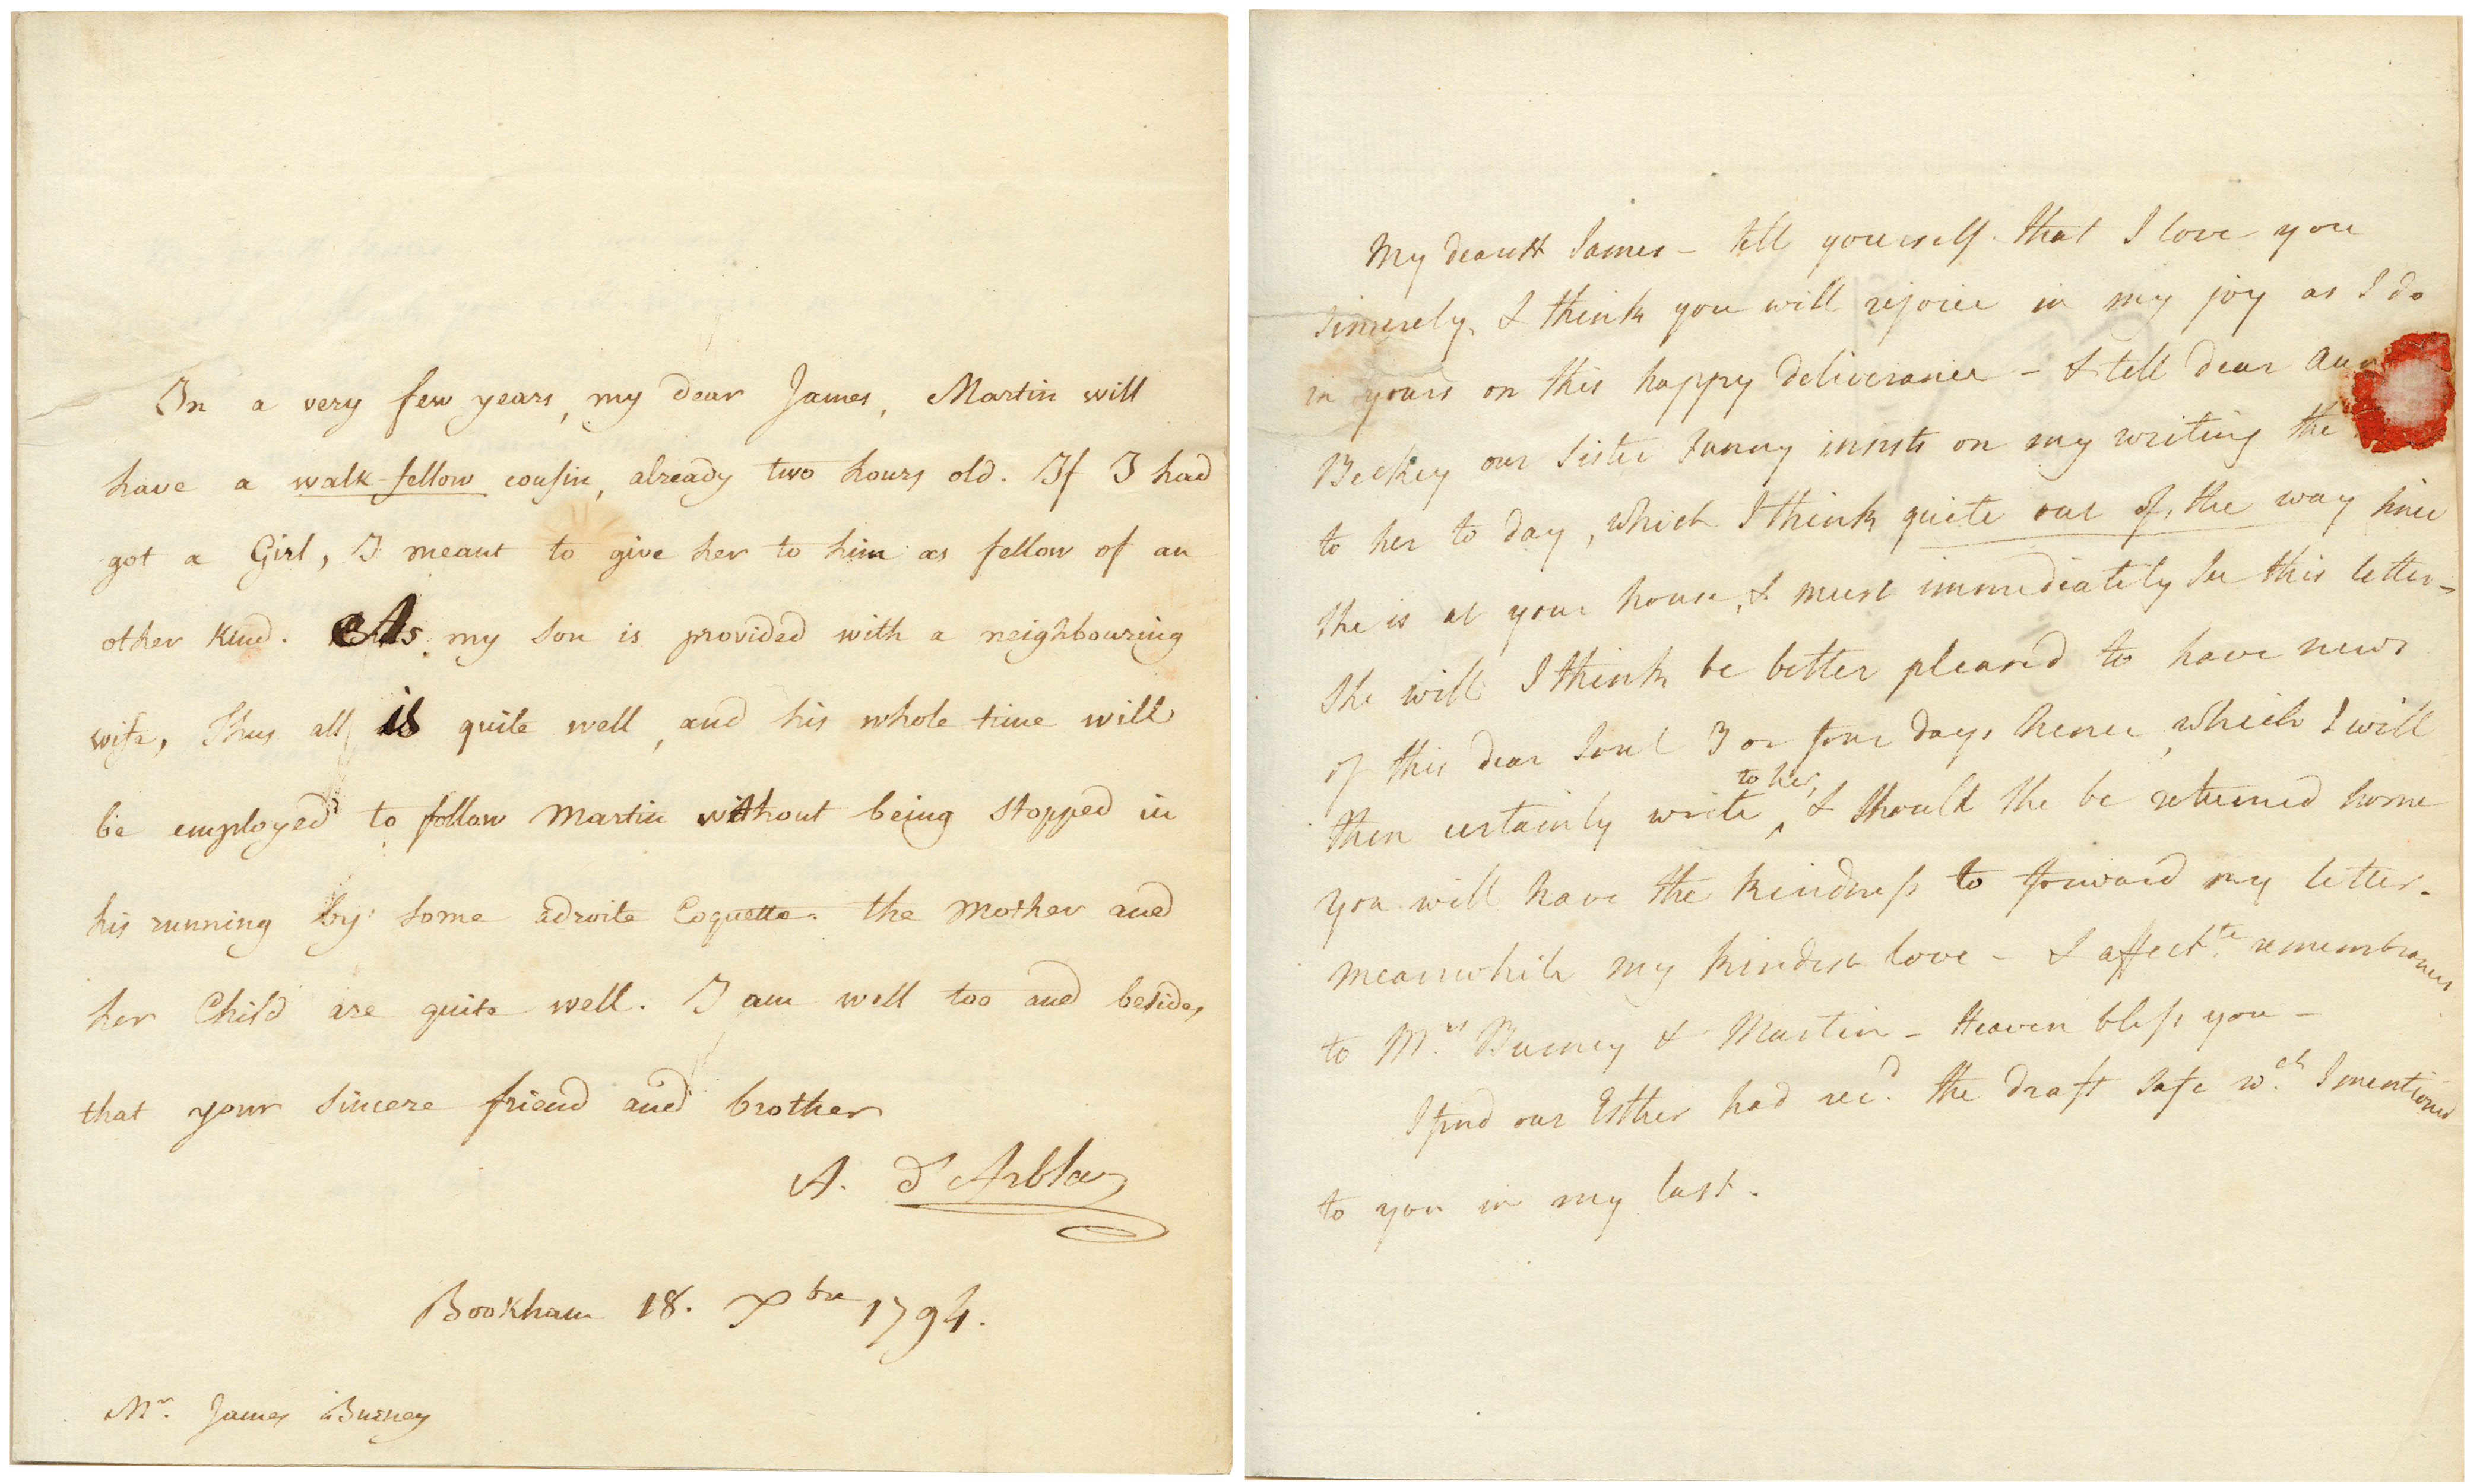 In a very few years, my dear James, Martin will
have a walk-fellow cousin, already two hours old. If I had
got a Girl, I meant to give her to him as fellow of an
other kind. As my son is provided with a neighbouring
wife, Thus all is quite well, and his whole time will
be employed to follow Martin without being stopped in
his running by some adroite Coquette. the Mother and
her Child are quite well. I am well too and besides,
that your sincere friend and brother
A. d'Arblay
Bookham 18. Xbre 1794.
Mr. James Burney
My dearest James – tell yourself that I love you
sincerely, & think you will rejoice in my joy as I do
in yours on this happy deliverance – & tell dear
Beckey our Sister Fanny insists on my writing the
to her to day, which I think quite out of the way since
she is at your house, & must immediately see this letter –
She will I think be better pleased to have news
of this dear Soul 3 or four days hence, which I will
then certainly write to her, & should she be returned home
you will have the kindness to forward my letter.
meanwhile my kindest love – & affectte. remembrances
to Mrs. Burney & Martin – Heaven bless you –
I find our Esther had recd. the draft safe wch. I mentioned
to you in my last.